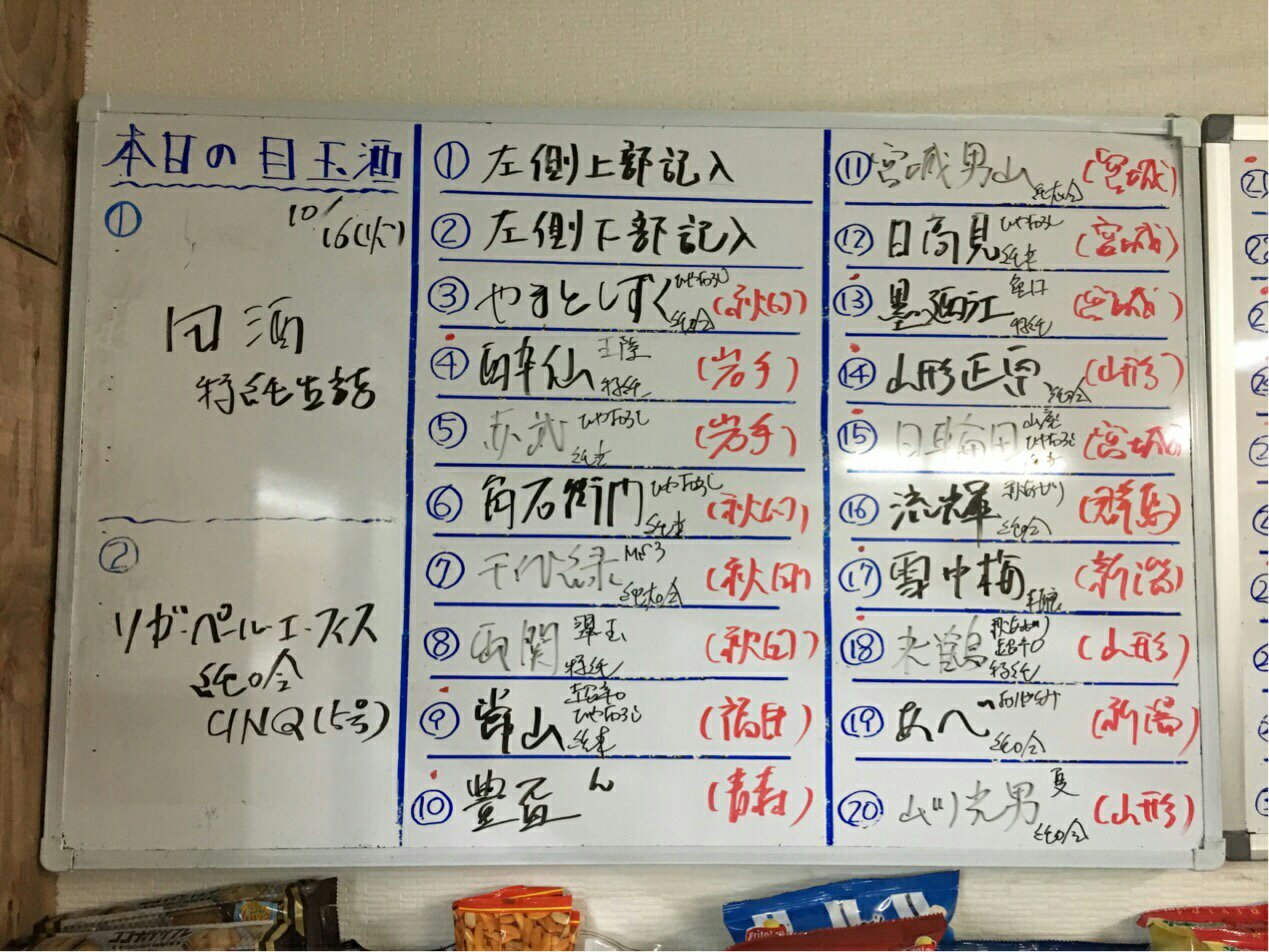 本日の目玉酒
①
10/16(火)
田酒
特純生詰
②
リガ・ペールエ・フィス
純吟
CINQ(5号)
① 左側上部記入
② 左側下部記入
③ やまとしずく ひやおろし 純吟 (秋田)
④ 酔仙 特純 (岩手)
⑤ 赤武 ひやおろし 純米 (岩手)
⑥ 角右衛門 ひやおろし 純米 (秋田)
⑦ 千代緑 純大吟 (秋田)
⑧ 両関 翠玉 特純 (秋田)
⑨ 常山 超辛口 ひやおろし 純米 (福井)
⑩ 豊盃 ん (青森)
⑪ 宮城男山 純大吟 (宮城)
⑫ 日高見 ひやおろし 純米 (宮城)
⑬ 墨廼江 特純 (宮城)
⑭ 山形正宗 純吟 (山形)
⑮ 日輪田 山廃 ひやおろし (宮城)
⑯ 流輝 秋あがり 純吟 (群馬)
⑰ 雪中梅 (新潟)
⑱ 米鶴 秋あがり 超辛口 特純 (山形)
⑲ あべ おりがらみ 純吟 (新潟)
⑳ ばくれん男 夏 純吟 (山形)
Frito